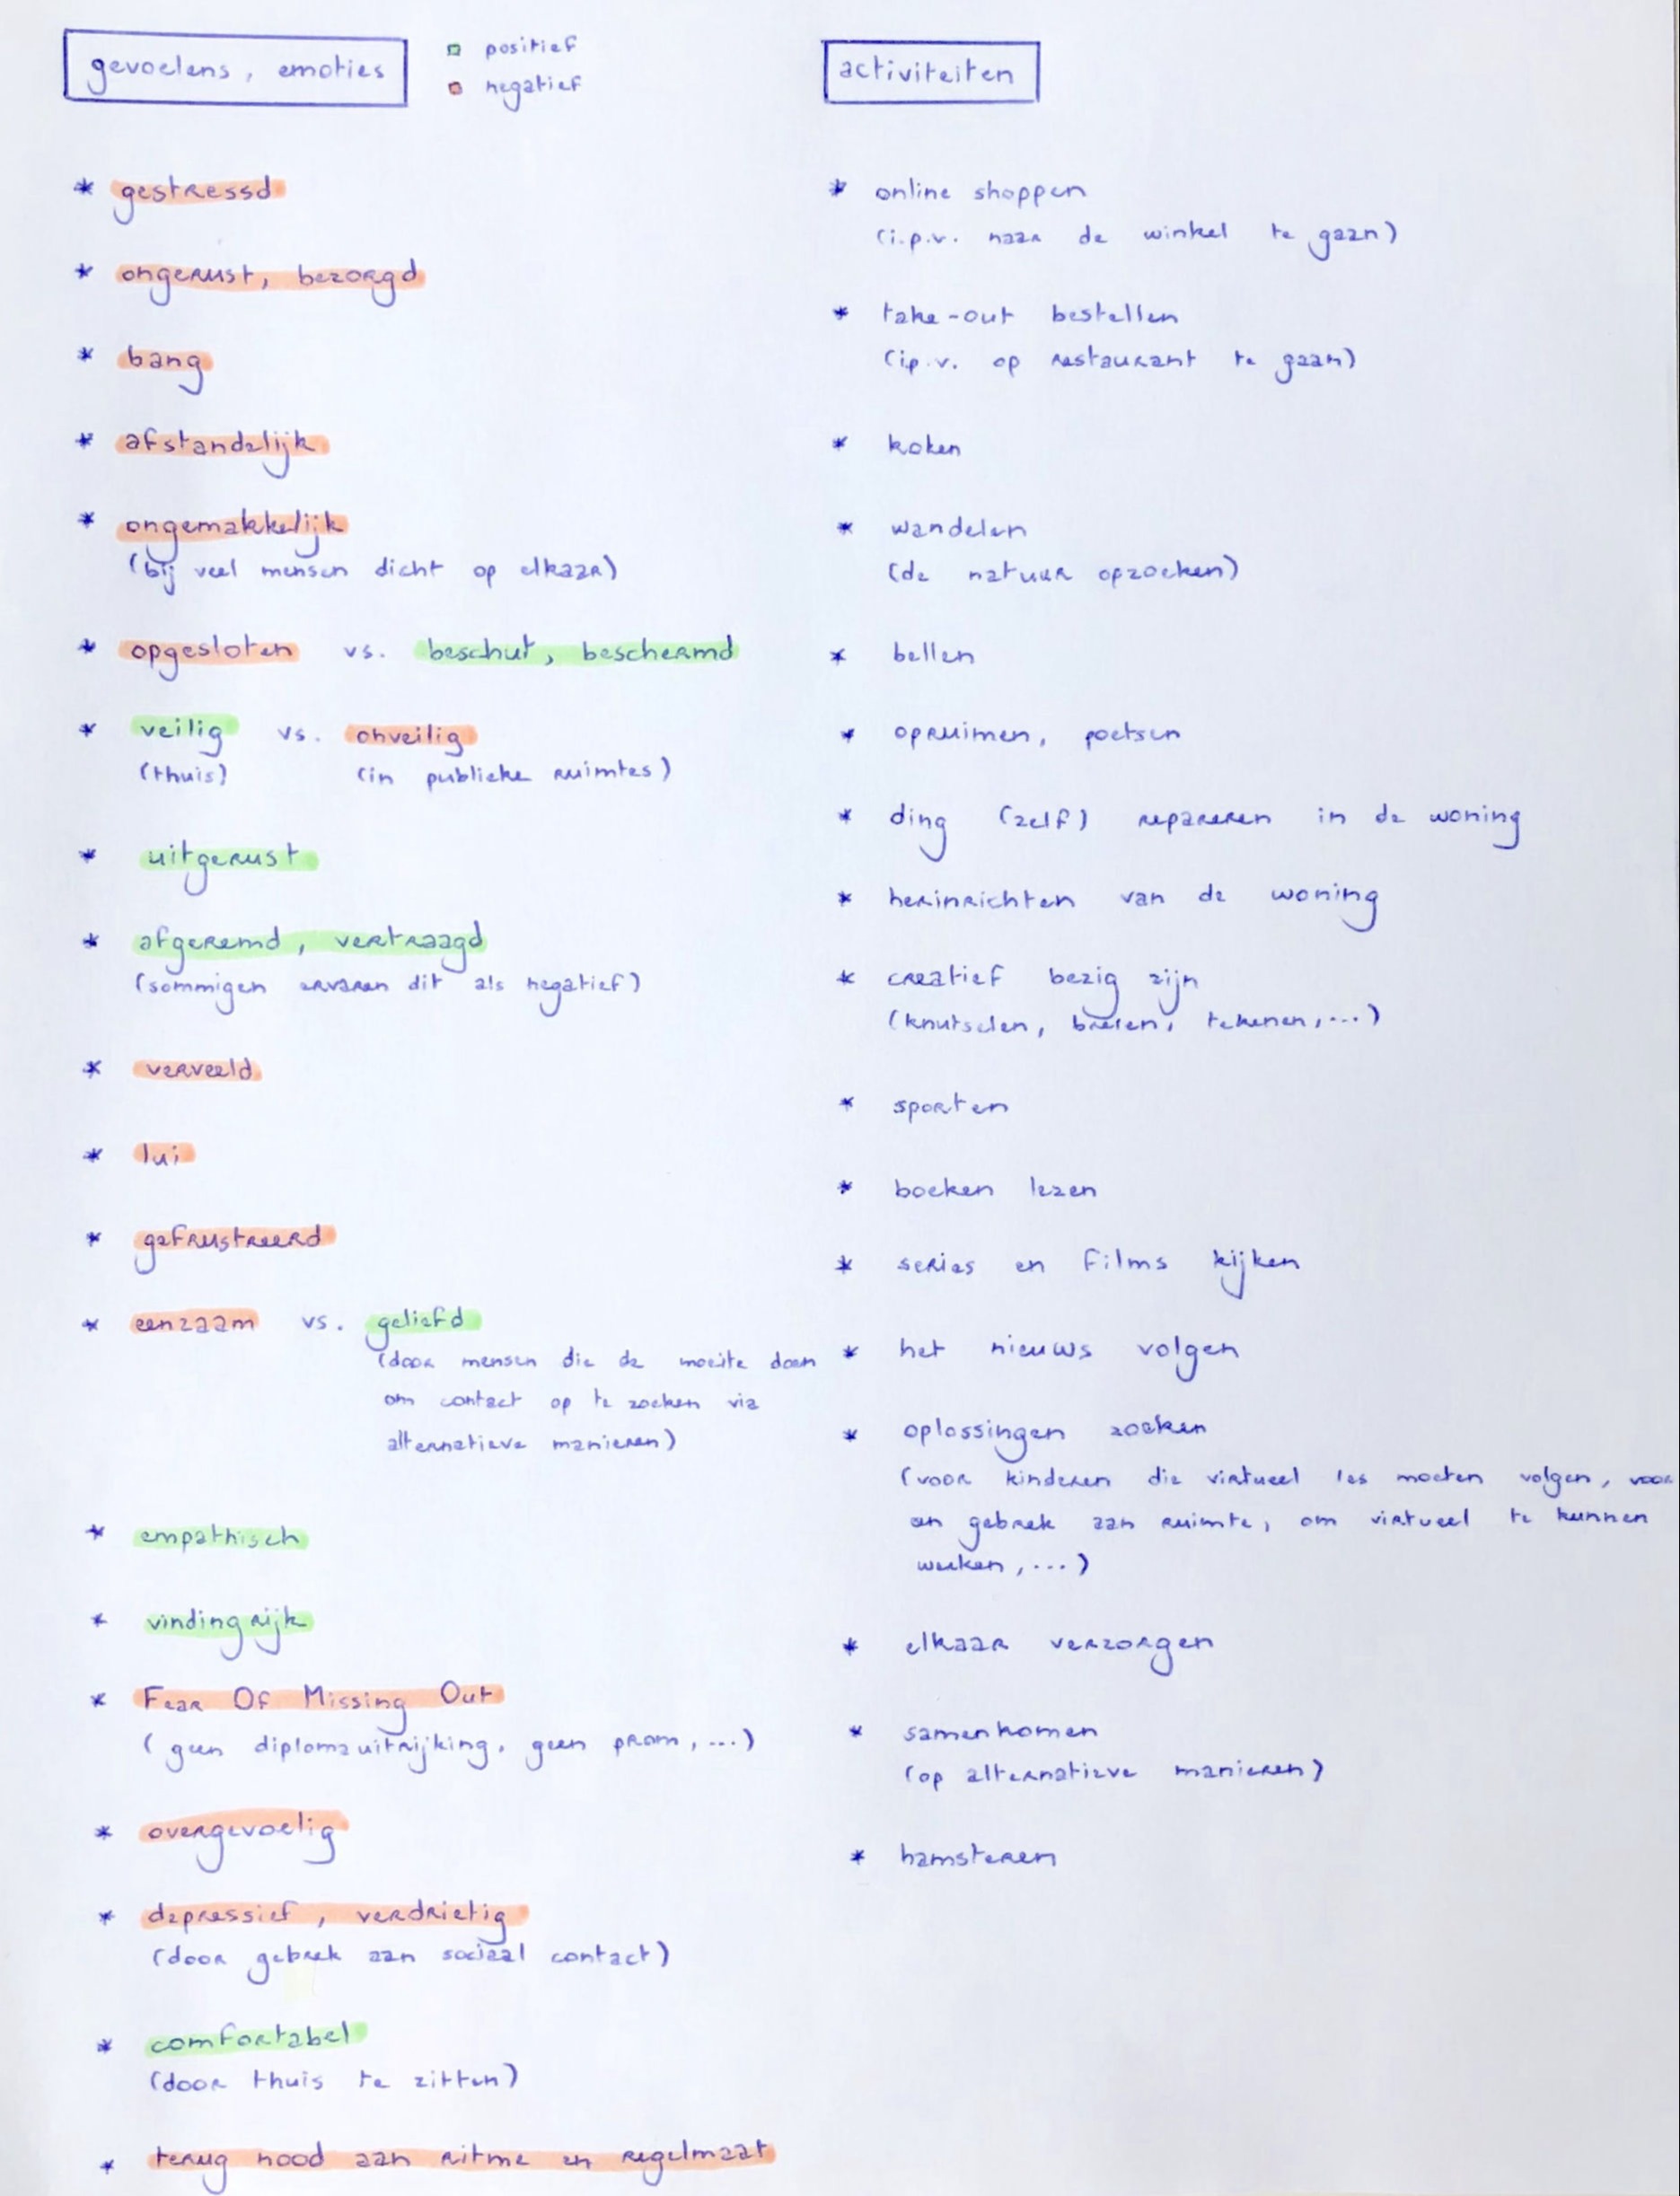 gevoelens, emoties
positief
negatief
* gestressd
* ongerust, bezorgd
* bang
* afstandelijk
* ongemakkelijk
(bij veel mensen dicht op elkaar)
* opgesloten vs. beschut, beschermd
* veilig vs. onveilig
(thuis) (in publieke ruimtes)
* uitgerust
* afgeremd, vertraagd
(sommigen ervaren dit als negatief)
* verveeld
* lui
* gefrustreerd
* eenzaam vs. geliefd
(door mensen die de moeite doen
om contact op te zoeken via
alternatieve manieren)
* empathisch
* vindingrijk
* Fear Of Missing Out
(geen diplomauitrijking, geen prom, ...)
* overgevoelig
* depressief, verdrietig
(door gebrek aan sociaal contact)
* comfortabel
(door thuis te zitten)
* terug nood aan ritme en regelmaat
activiteiten
* online shoppen
(i.p.v. naar de winkel te gaan)
* take-out bestellen
(i.p.v. op restaurant te gaan)
* koken
* wandelen
(de natuur opzoeken)
* bellen
* opruimen, poetsen
* ding (zelf) repareren in de woning
* herinrichten van de woning
* creatief bezig zijn
(knutselen, breien, tekenen, ...)
* sporten
* boeken lezen
* series en films kijken
* het nieuws volgen
* oplossingen zoeken
(voor kinderen die virtueel les moeten volgen, voor
een gebrek aan ruimte, om virtueel te kunnen
werken, ...)
* elkaar verzorgen
* samenkomen
(op alternatieve manieren)
* hamsteren